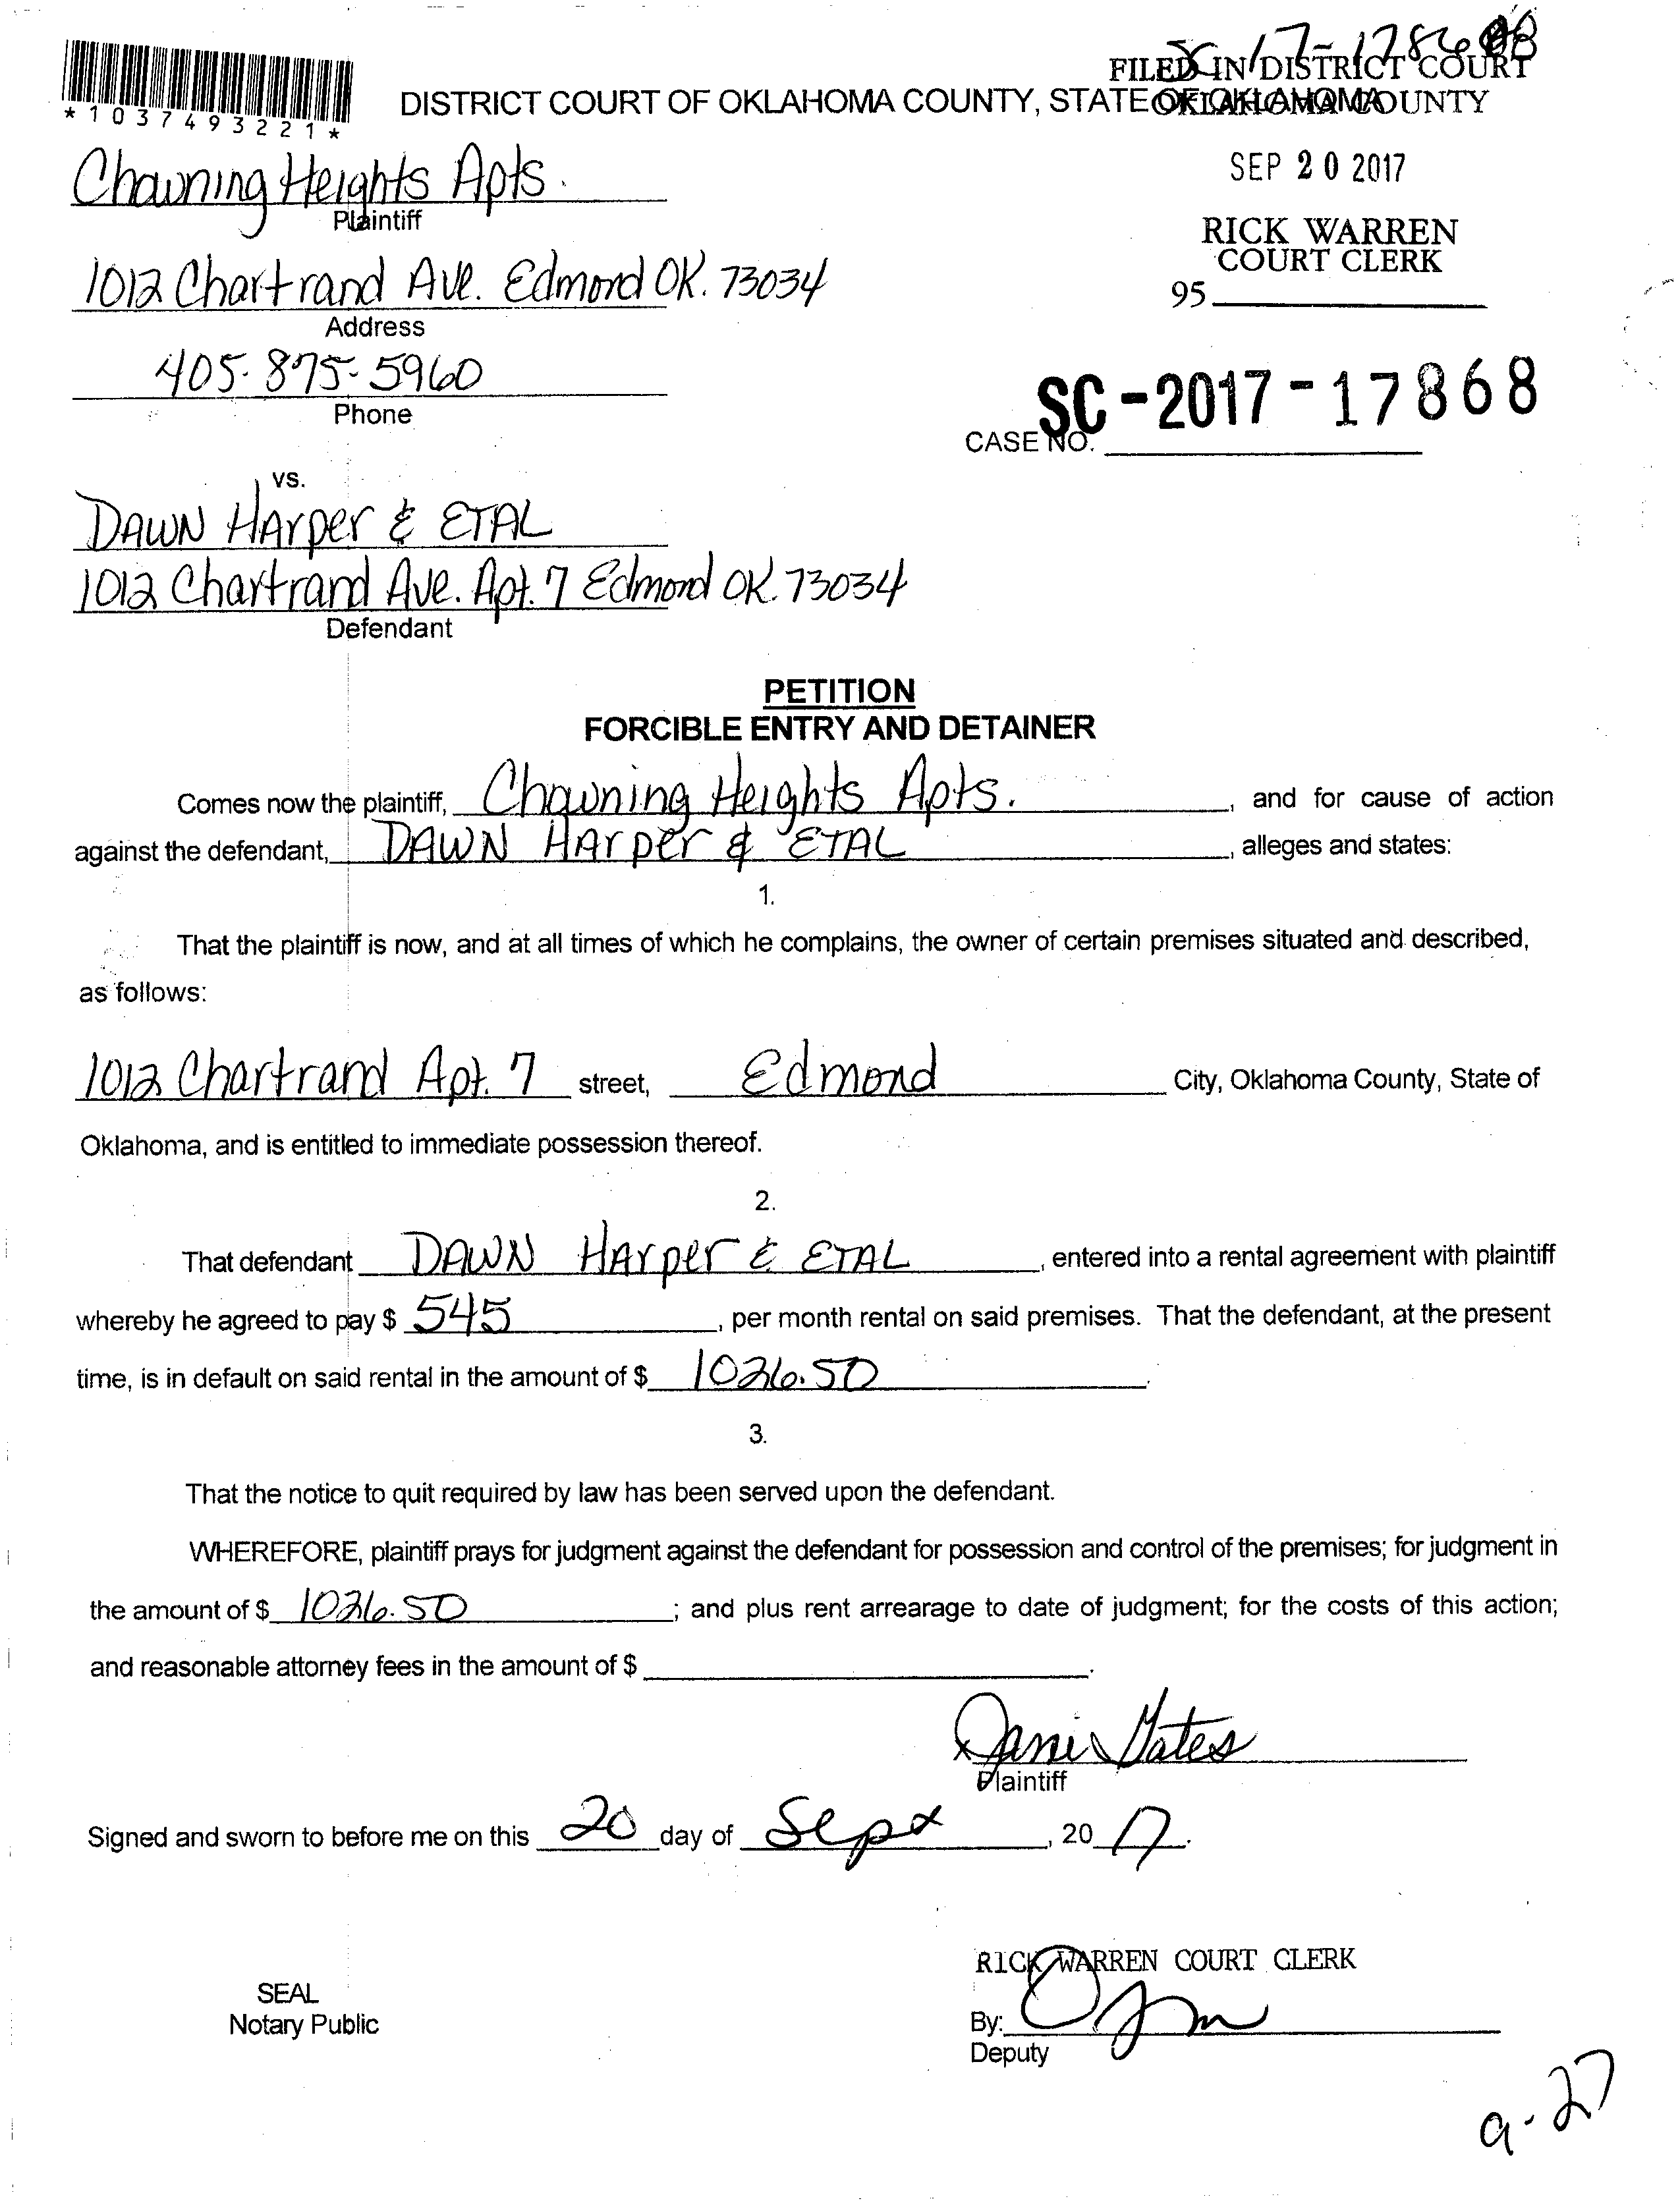 FILED IN DISTRICT COURT
OKLAHOMA COUNTY
*1037493221*
DISTRICT COURT OF OKLAHOMA COUNTY, STATE OF OKLAHOMA
SEP 20 2017
RICK WARREN
COURT CLERK
95
Chowning Heights Apts.
Plaintiff
1012 Chartrand Ave. Edmond OK. 73034
Address
405-875-5960
Phone
SC-2017-17868
CASE NO.
vs.
DAWN HArper & ETAL
1012 Chartrand Ave. Apt. 7 Edmond OK. 73034
Defendant
PETITION
FORCIBLE ENTRY AND DETAINER
Comes now the plaintiff, Chowning Heights Apts. , and for cause of action
against the defendant, DAWN HArper & ETAL , alleges and states:
1.
That the plaintiff is now, and at all times of which he complains, the owner of certain premises situated and described,
as follows:
1012 Chartrand Apt. 7 street, Edmond City, Oklahoma County, State of
Oklahoma, and is entitled to immediate possession thereof.
2.
That defendant DAWN HArper & ETAL , entered into a rental agreement with plaintiff
whereby he agreed to pay $ 545 , per month rental on said premises. That the defendant, at the present
time, is in default on said rental in the amount of $ 1026.50 .
3.
That the notice to quit required by law has been served upon the defendant.
WHEREFORE, plaintiff prays for judgment against the defendant for possession and control of the premises; for judgment in
the amount of $ 1026.50 ; and plus rent arrearage to date of judgment; for the costs of this action;
and reasonable attorney fees in the amount of $ .
x Janis Yates
Plaintiff
Signed and sworn to before me on this 20 day of Sept , 20 17.
RICK WARREN COURT CLERK
SEAL
Notary Public
By:
Deputy
9-27